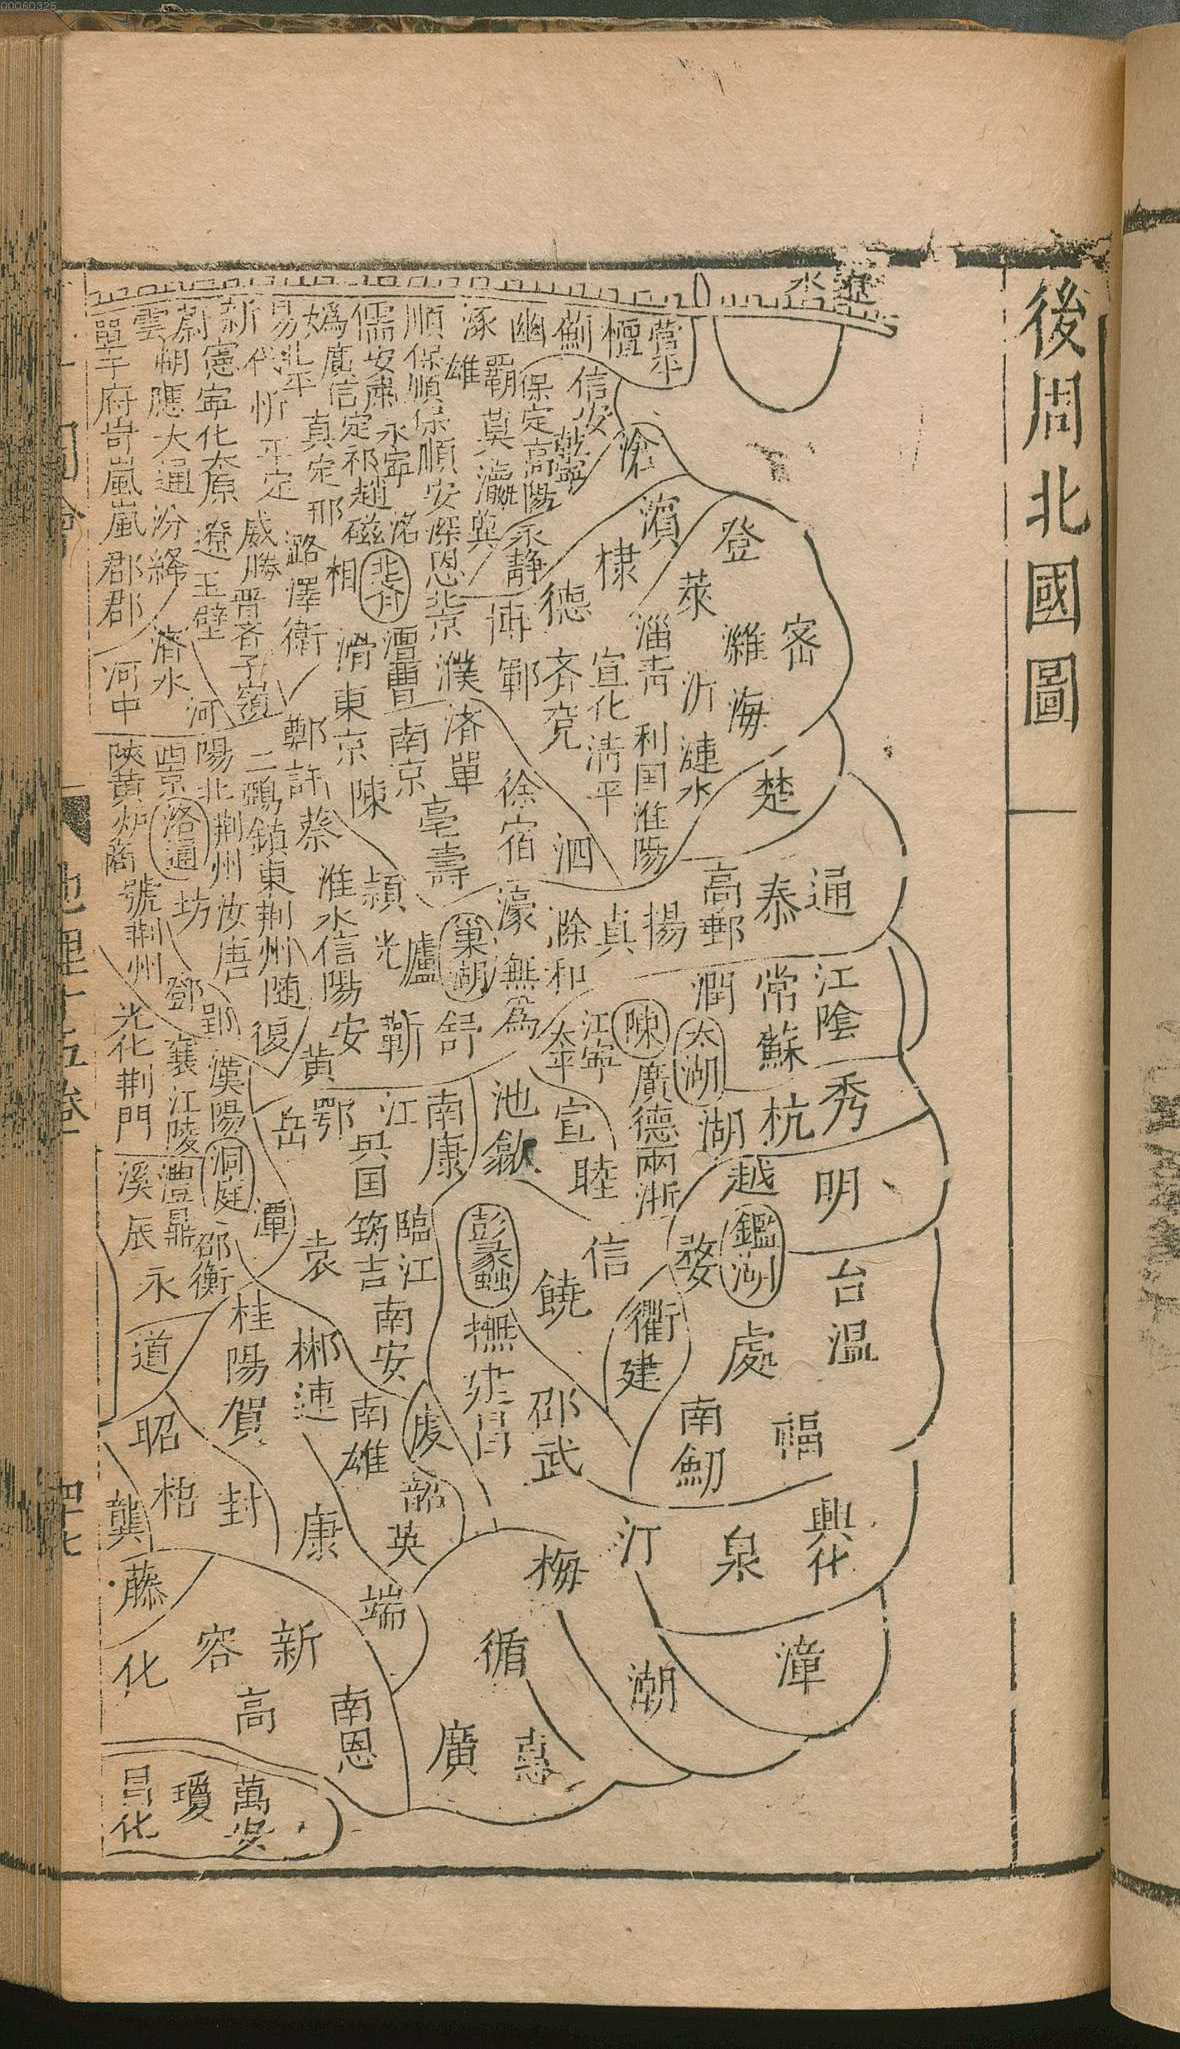 00060325
後周北國圖
遼水
營平
檀
薊
幽
涿
順
儒
媯
易
新
蔚
雲
單于府岢嵐嵐郡郡
朔應大通汾絳
憲寧化太原遼玉壁
代忻平定威勝晉
北平
廣信定祁趙磁
安肅永寧洺
保順保順安深恩北京
雄
霸莫瀛冀
保定高陽永靜
信安
乾寧
滄
真定邢
潞澤衛
相
濱
棣
德
登
萊
濰
密
淄青
沂
海
漣水
宣化清平
利国淮陽
齊兗
博
鄆
濮
澶曹
滑
東京
濟水
河中
河陽北荆州汝唐
子嶺
鄭許蔡
陳
南京
濟單
亳壽
徐宿
泗
楚
通
泰
高郵
揚
真
滁和
濠
無為
巢湖
廬
光
潁
淮水信陽
二鵶鎮東荆州隨復
西京
洛通
坊
陝
商
虢荆州
鄧
郢
襄江陵
漢陽
光化荆門
黃
安
蘄
舒
太平
江寧
陳
潤
常
江陰
蘇
太湖
廣德兩浙
湖
杭
秀
池
歙
宣
睦
南康
江
鄂
岳
吳国
洞庭
澧鼎
溪
辰
永
邵衡
潭
袁
筠吉
臨江
彭蠡
饒
信
越
明
鑑湖
婺
台
温
處
衢
建
福
南劒
邵武
撫建昌
南安
虔
南雄
郴
連
桂陽
賀
道
昭
梧
封
康
韶
英
端
龔
藤
化
容
新
高
南恩
廣
惠
循
梅
汀
潮
漳
泉
興化
昌化
瓊
萬安
地理十五卷
四七